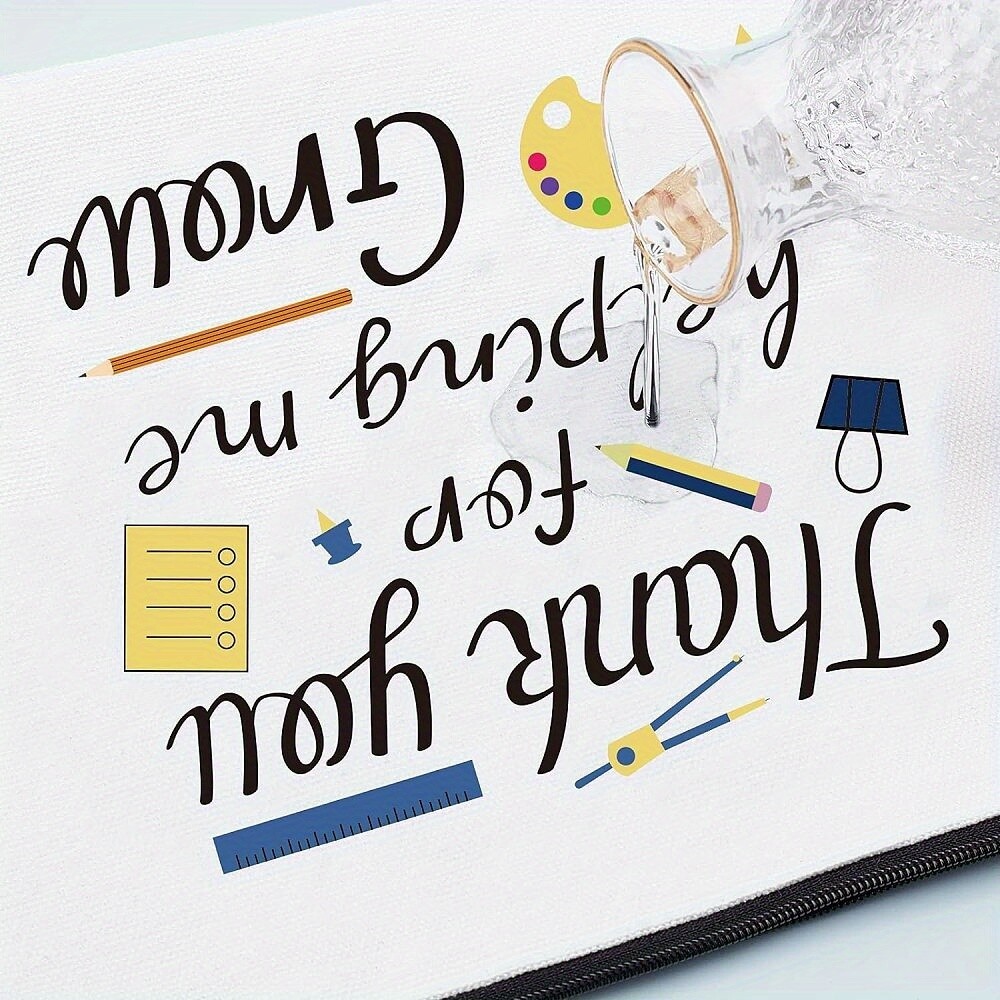 Thank you
for
helping me
Grow